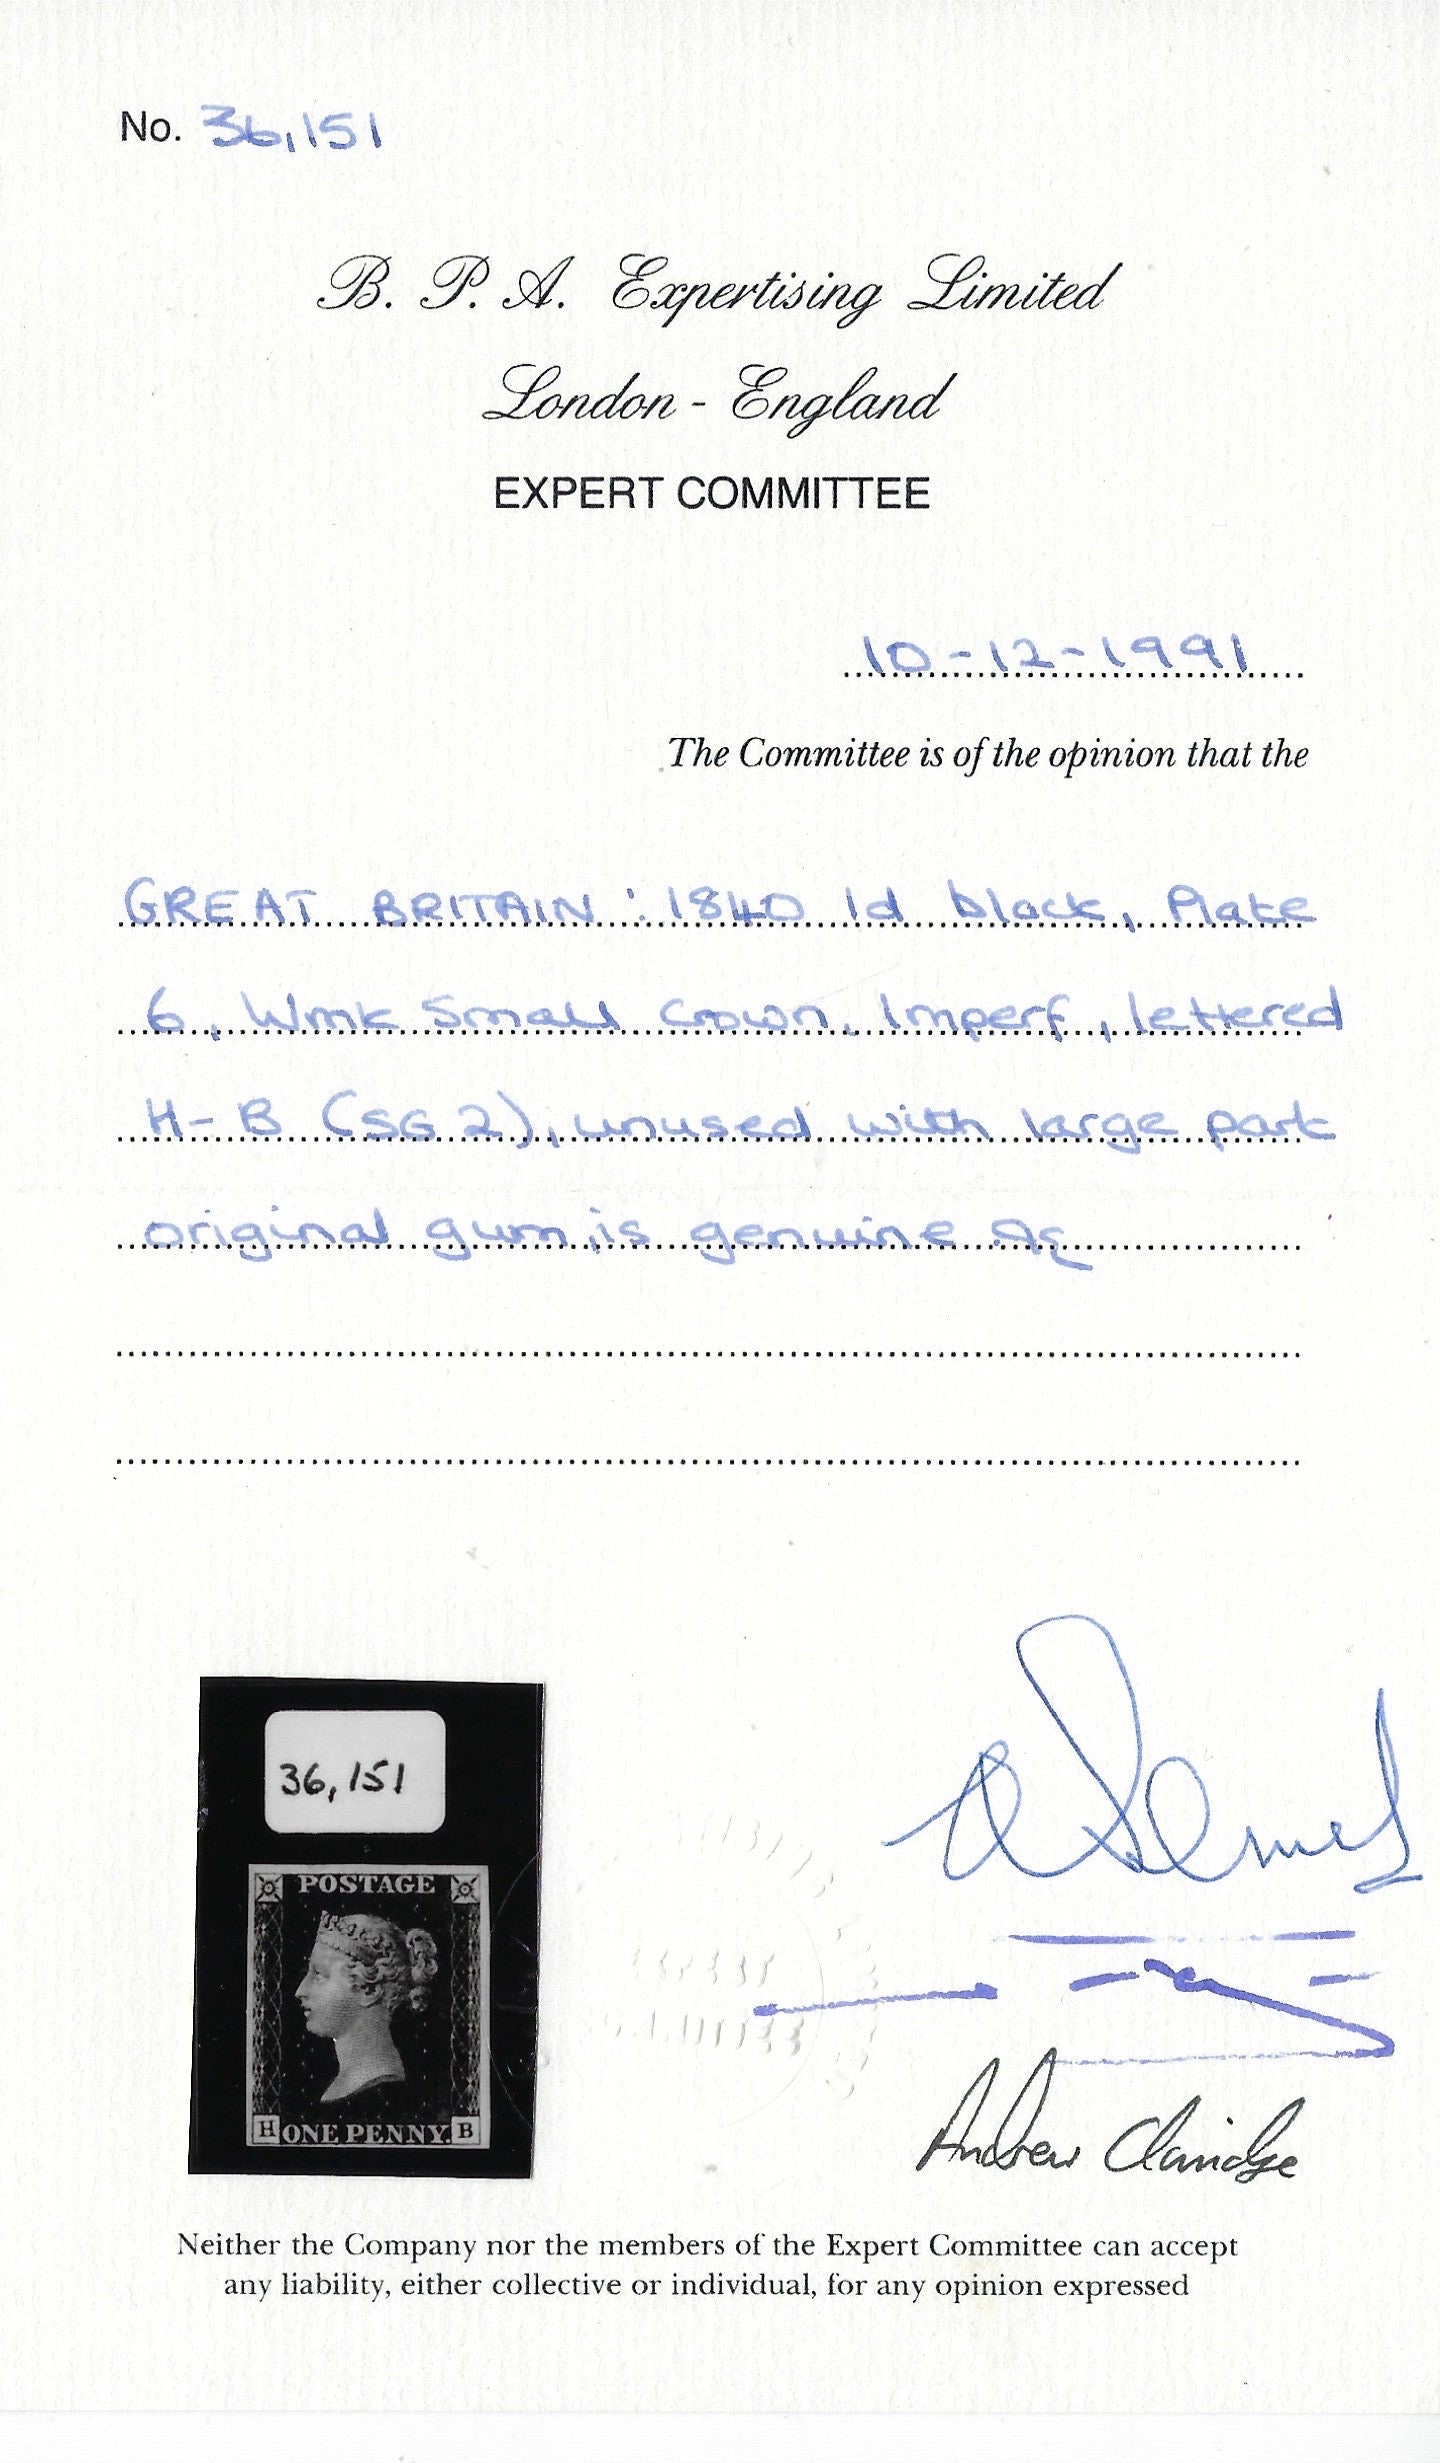 No. 36,151
B. P. A. Expertising Limited
London - England
EXPERT COMMITTEE
10-12-1991
The Committee is of the opinion that the
GREAT BRITAIN : 1840 1d black, Plate
6, Wmk Small Crown. Imperf, lettered
H-B (SG 2), unused with large part
original gum, is genuine
36,151
POSTAGE
H ONE PENNY. B
Andrew Claridge
Neither the Company nor the members of the Expert Committee can accept
any liability, either collective or individual, for any opinion expressed